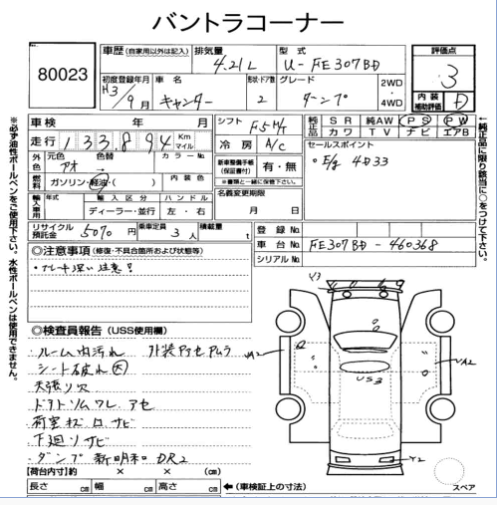 バントラコーナー
80023
車歴 (自家用以外は記入)
排気量 4.21L
型式 U-FE307BD
評価点 3
内装補助評価 D
初度登録年月 H3/9月
車名 キャンター
形状・ドア数 2
グレード ダンプ
2WD・4WD
車検 年 月
シフト F5M/T
純正品 SR 純AW PS PW
カワ TV ナビ エアB
走行 133,894 Km マイル
冷房 A/C
セールスポイント
• E/g 4D33
外色 元色 アオ 色替 カラーNo
新車整備手帳(保証書付) 有・無
※書類と一緒に保管下さい。
燃料 ガソリン・軽油・( ) 内装色
名義変更期限
月 日
輸入車用 年式 輸入区分 ハンドル
ディーラー・並行 左・右
リサイクル預託金 5070円
乗車定員 3人
積載量 t
登録No.
車台No. FE307BD-460368
シリアルNo.
◎注意事項(修復・不具合箇所および状態等)
◎検査員報告(USS使用欄)
ルーム内汚れ
シート破れ 大
天張り穴
荷室
下廻りサビ
ダンプ 新明和 DR2
Y3
A2
US3
Y2
【荷台内寸】約 × × (cm)
長さ cm 幅 cm 高さ cm ←(車検証上の寸法)
スペア
※必ず油性ボールペンをご使用下さい。水性ボールペンは使用できません。
↑純正品に限り該当に○をつけて下さい。